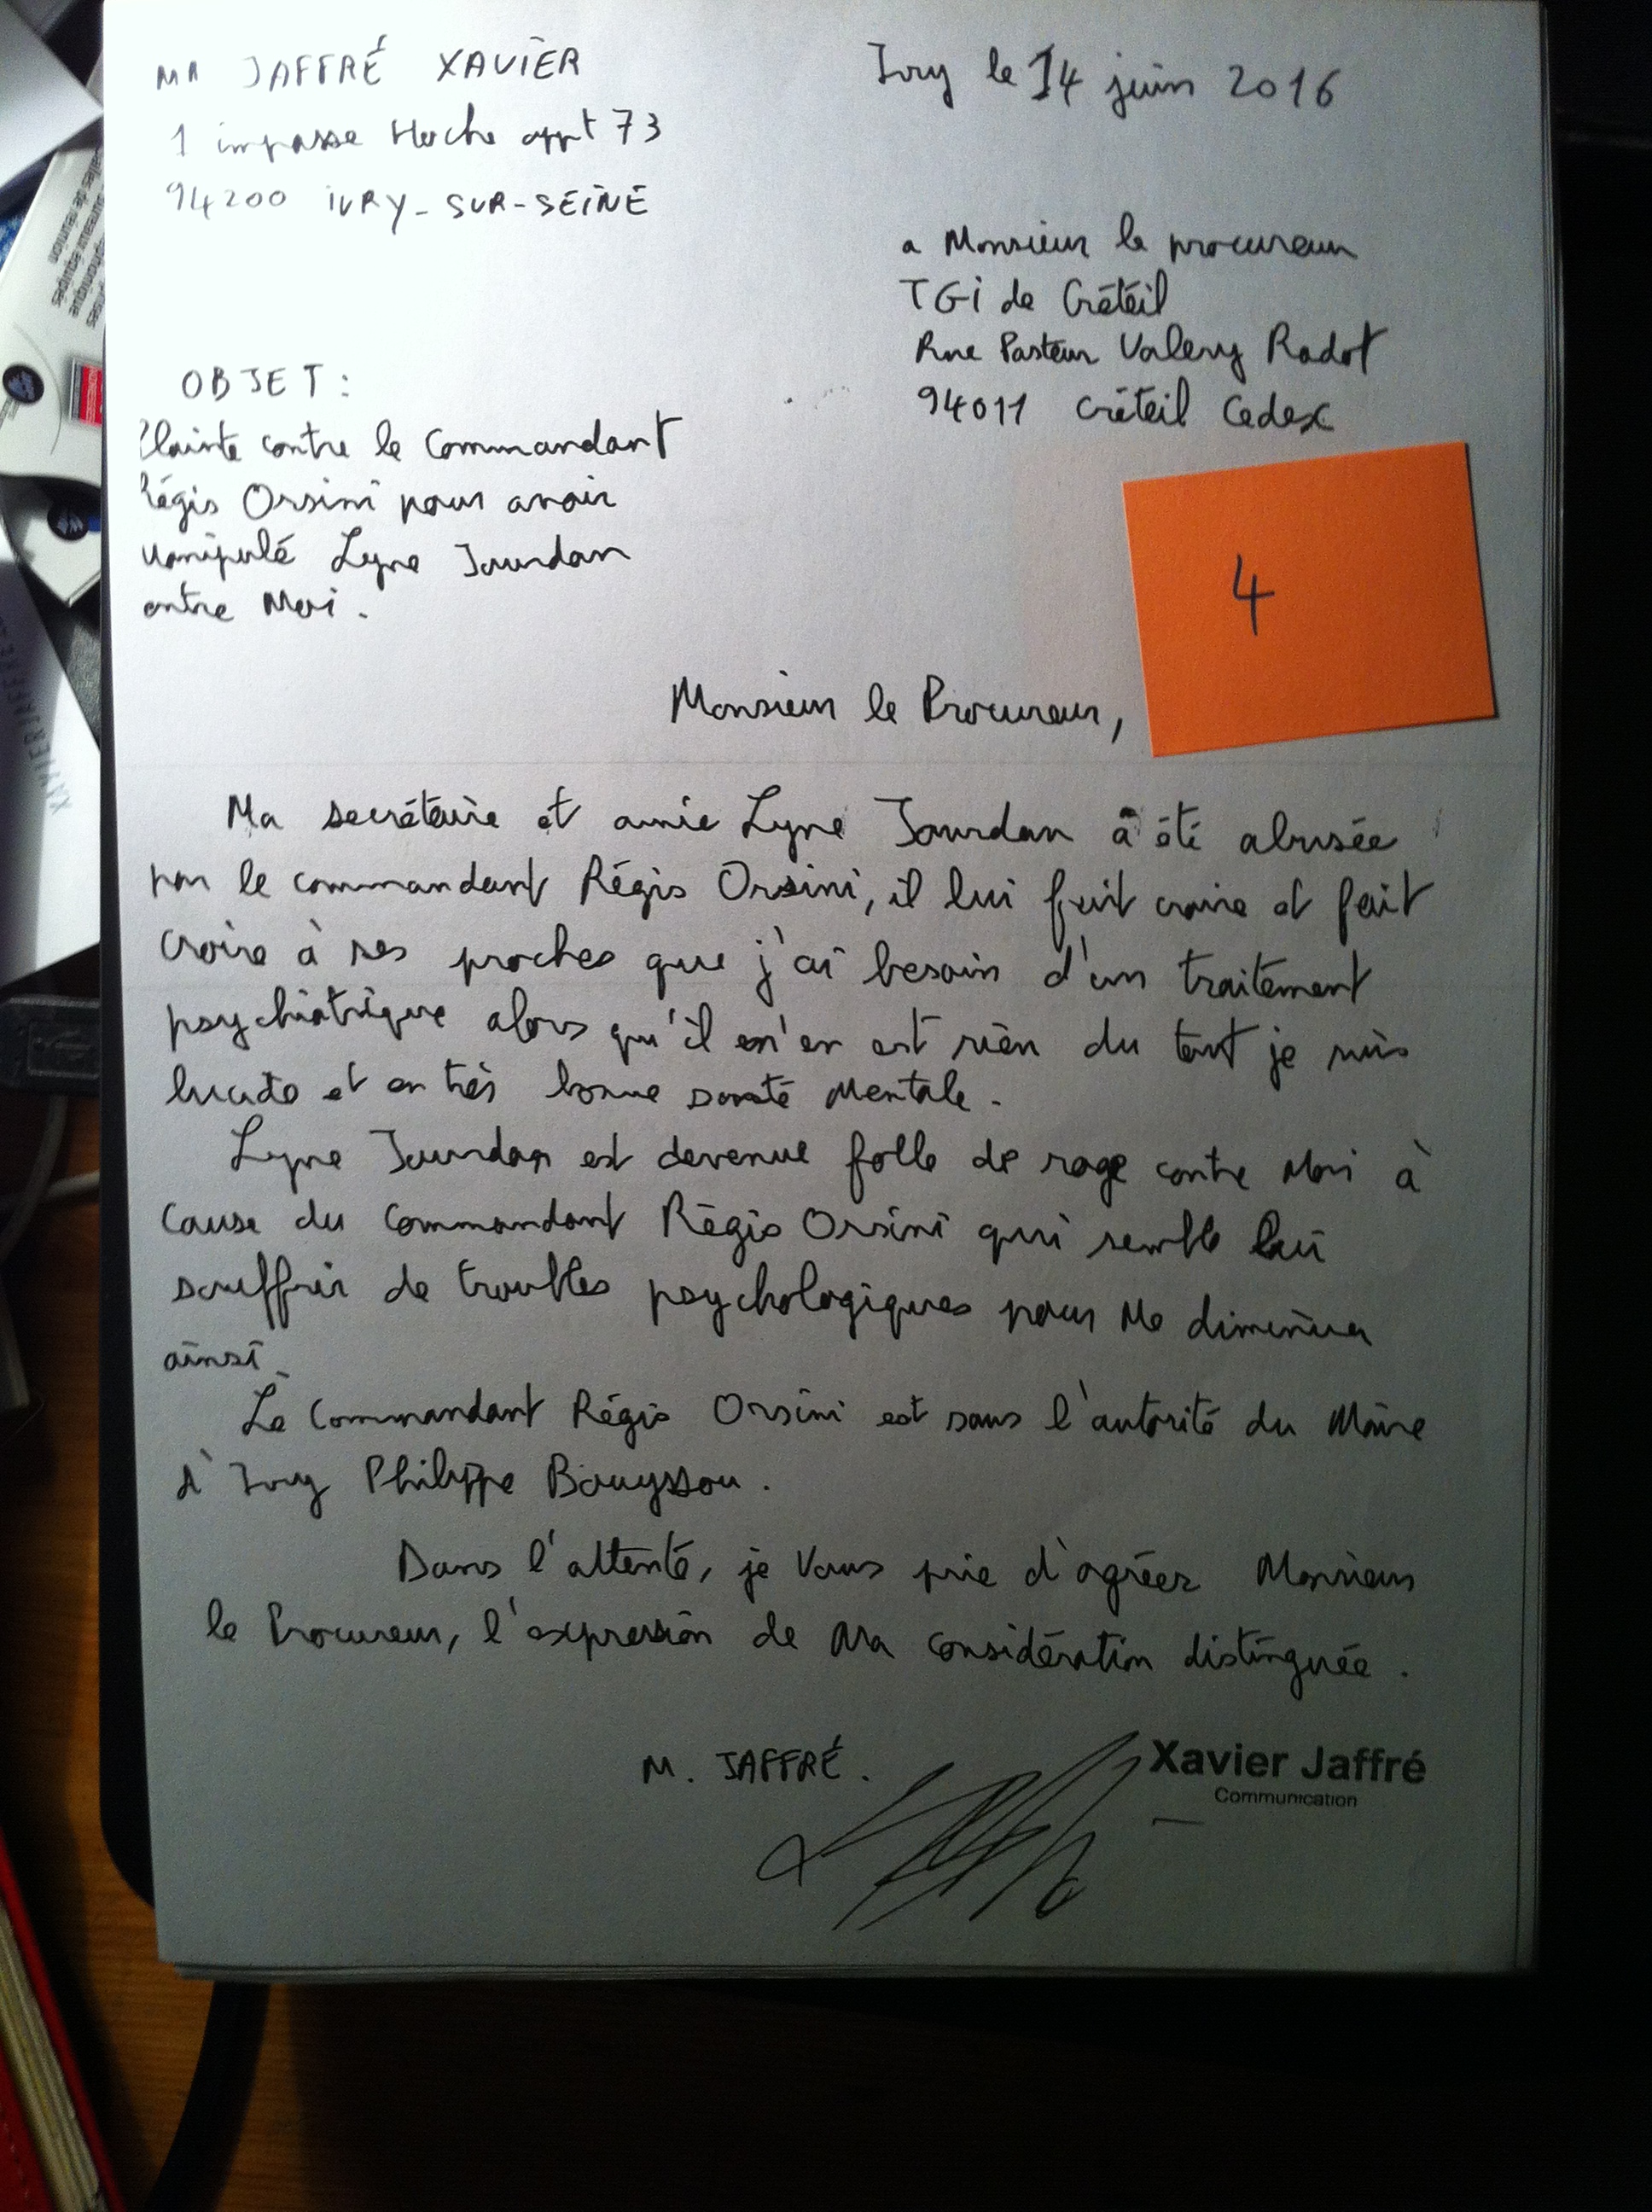 MR JAFFRÉ XAVIER
1 impasse Hoche appt 73
94200 IVRY-SUR-SEINE
Ivry le 14 juin 2016
a Monsieur le procureur
TGI de Créteil
Rue Pasteur Valery Radot
94011 Créteil Cedex
OBJET :
Plainte contre le Commandant
Régis Orsini pour avoir
Manipulé Lyne Jourdan
contre Moi.
4
Monsieur le Procureur,
Ma secrétaire et amie Lyne Jourdan a été abusée
par le commandant Régis Orsini, il lui fait croire et fait
croire à ses proches que j'ai besoin d'un traitement
psychiatrique alors qu'il n'en est rien du tout je suis
lucide et en très bonne santé Mentale.
Lyne Jourdan est devenue folle de rage contre Moi à
cause du Commandant Régis Orsini qui semble lui
souffrir de troubles psychologiques pour Me diminuer
ainsi.
Le Commandant Régis Orsini est sous l'autorité du Maire
d'Ivry Philippe Bouyssou.
Dans l'attente, je Vous prie d'agréer Monsieur
le Procureur, l'expression de Ma considération distinguée.
M. JAFFRÉ.
Xavier Jaffré
Communication
salles de réunion
bureaux équipés
XAVIERJAFFRE